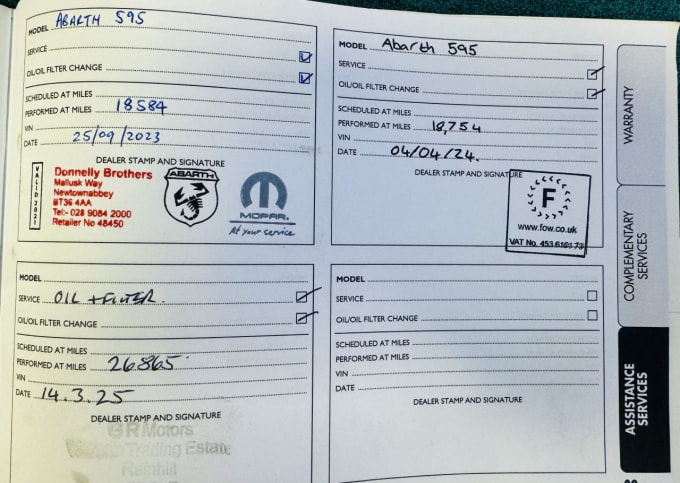 MODEL ABARTH 595
SERVICE
OIL/OIL FILTER CHANGE
SCHEDULED AT MILES
PERFORMED AT MILES 18584
VIN
DATE 25/09/2023
DEALER STAMP AND SIGNATURE
VALID 2021
Donnelly Brothers
Mallusk Way
Newtownabbey
BT36 4AA
Tel:- 028 9084 2000
Retailer No 48450
ABARTH
MOPAR
At your service
MODEL Abarth 595
SERVICE
OIL/OIL FILTER CHANGE
SCHEDULED AT MILES
PERFORMED AT MILES 18,754
VIN
DATE 04/04/24.
DEALER STAMP AND SIGNATURE
F
www.fow.co.uk
VAT No. 453
MODEL
SERVICE OIL + FILTER.
OIL/OIL FILTER CHANGE
SCHEDULED AT MILES
PERFORMED AT MILES 26865
VIN
DATE 14.3.25
DEALER STAMP AND SIGNATURE
GR Motors
Trading Estate
Rainhill
MODEL
SERVICE
OIL/OIL FILTER CHANGE
SCHEDULED AT MILES
PERFORMED AT MILES
VIN
DATE
DEALER STAMP AND SIGNATURE
WARRANTY
COMPLEMENTARY
SERVICES
ASSISTANCE
SERVICES